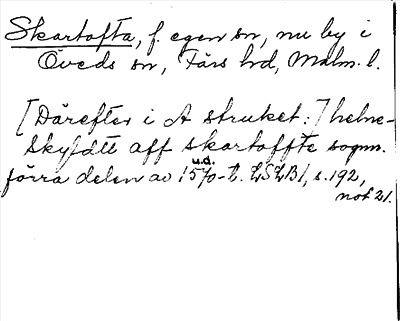 Skartofta, f. egen sn, nu by i
Öveds sn, Färs hd, Malm. l.
[Därefter i A struket:] helne-
skyfdtt aff skartoffte sognn.
u.d.
förra delen av 1570-t. LSLB1, s. 192,
not 21.